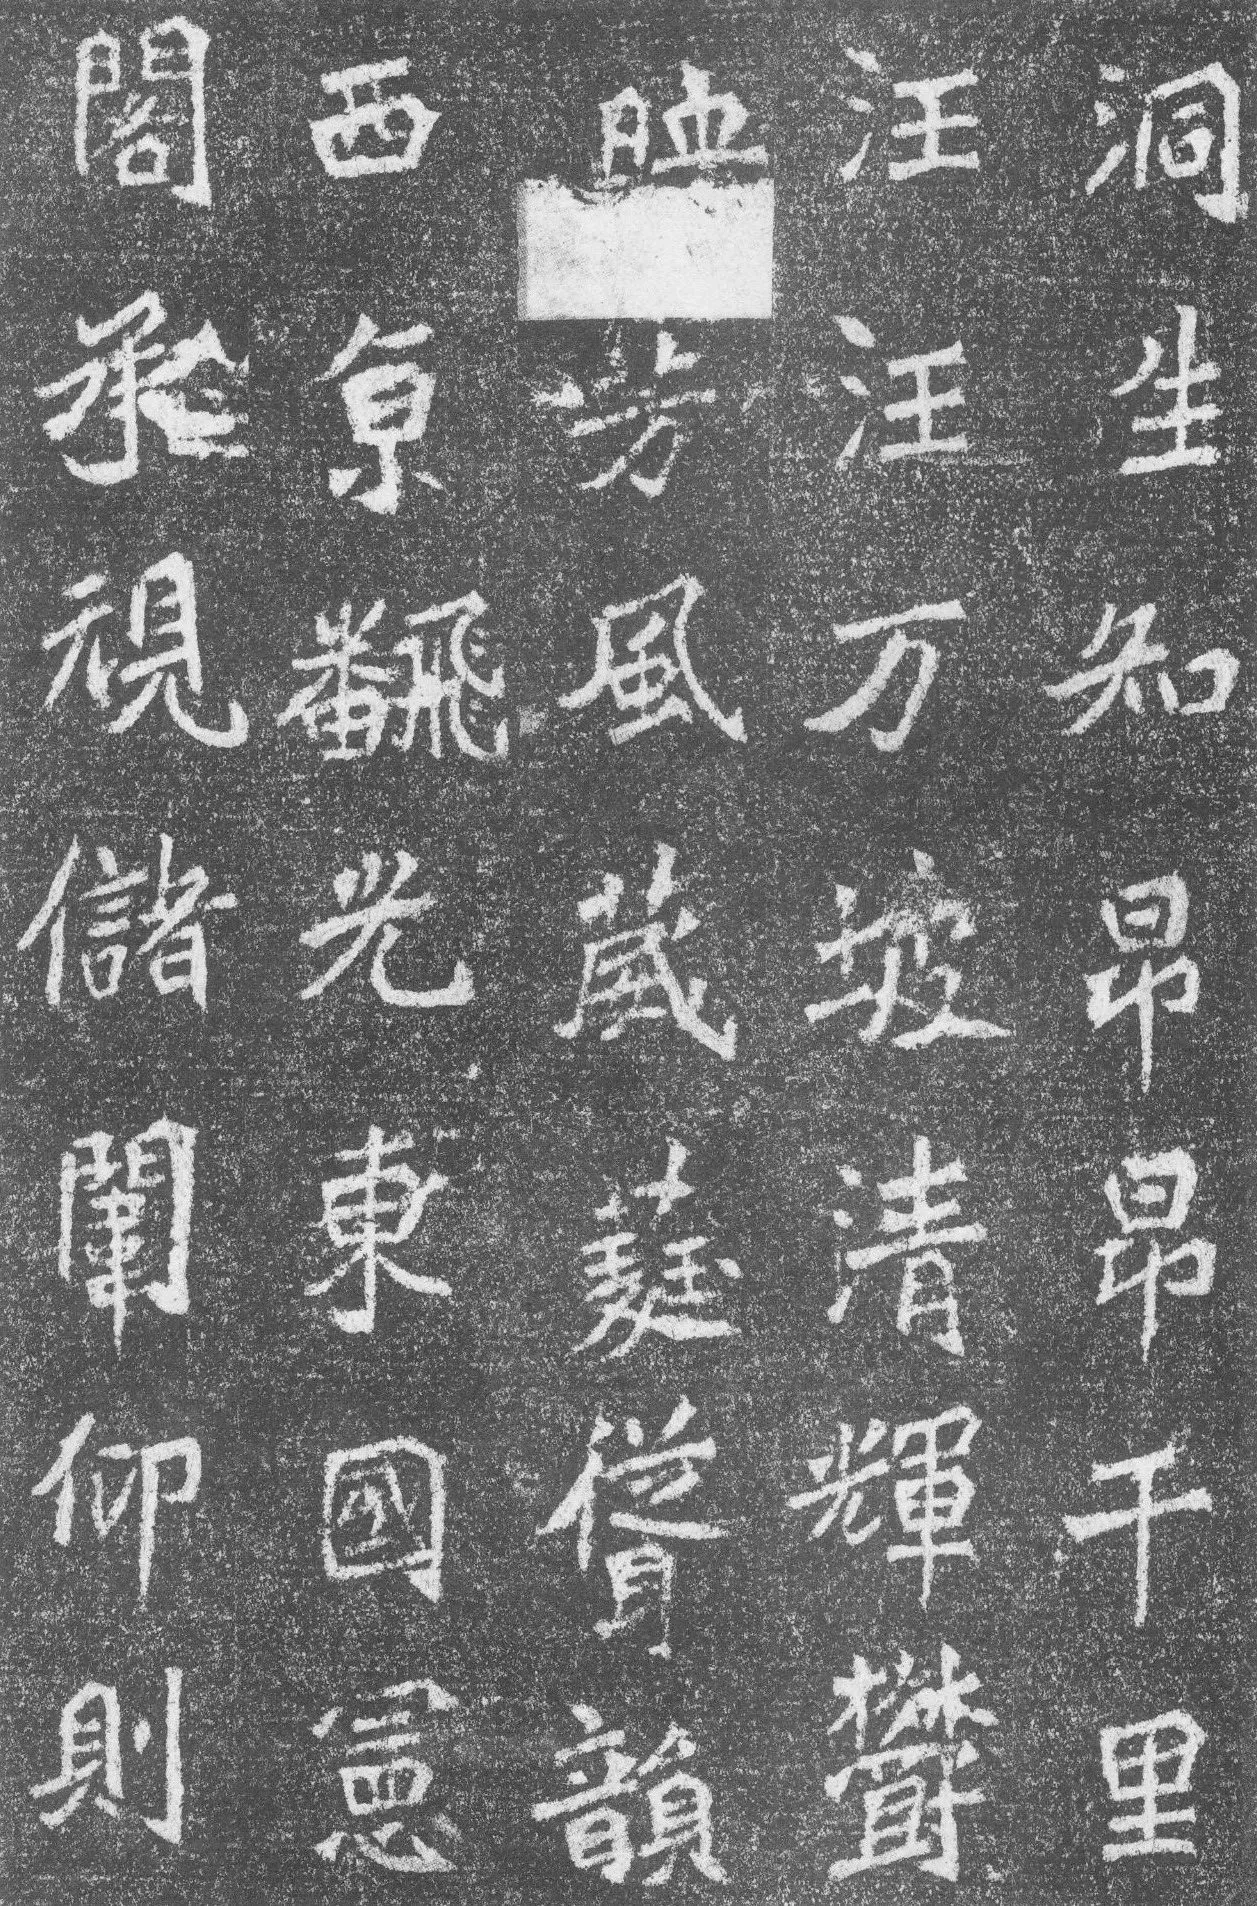 洞生知昂昂千里
汪汪万清輝鬱
芳風葳蕤聳韻
西京飜光東國憲
閣承視儲闈仰則